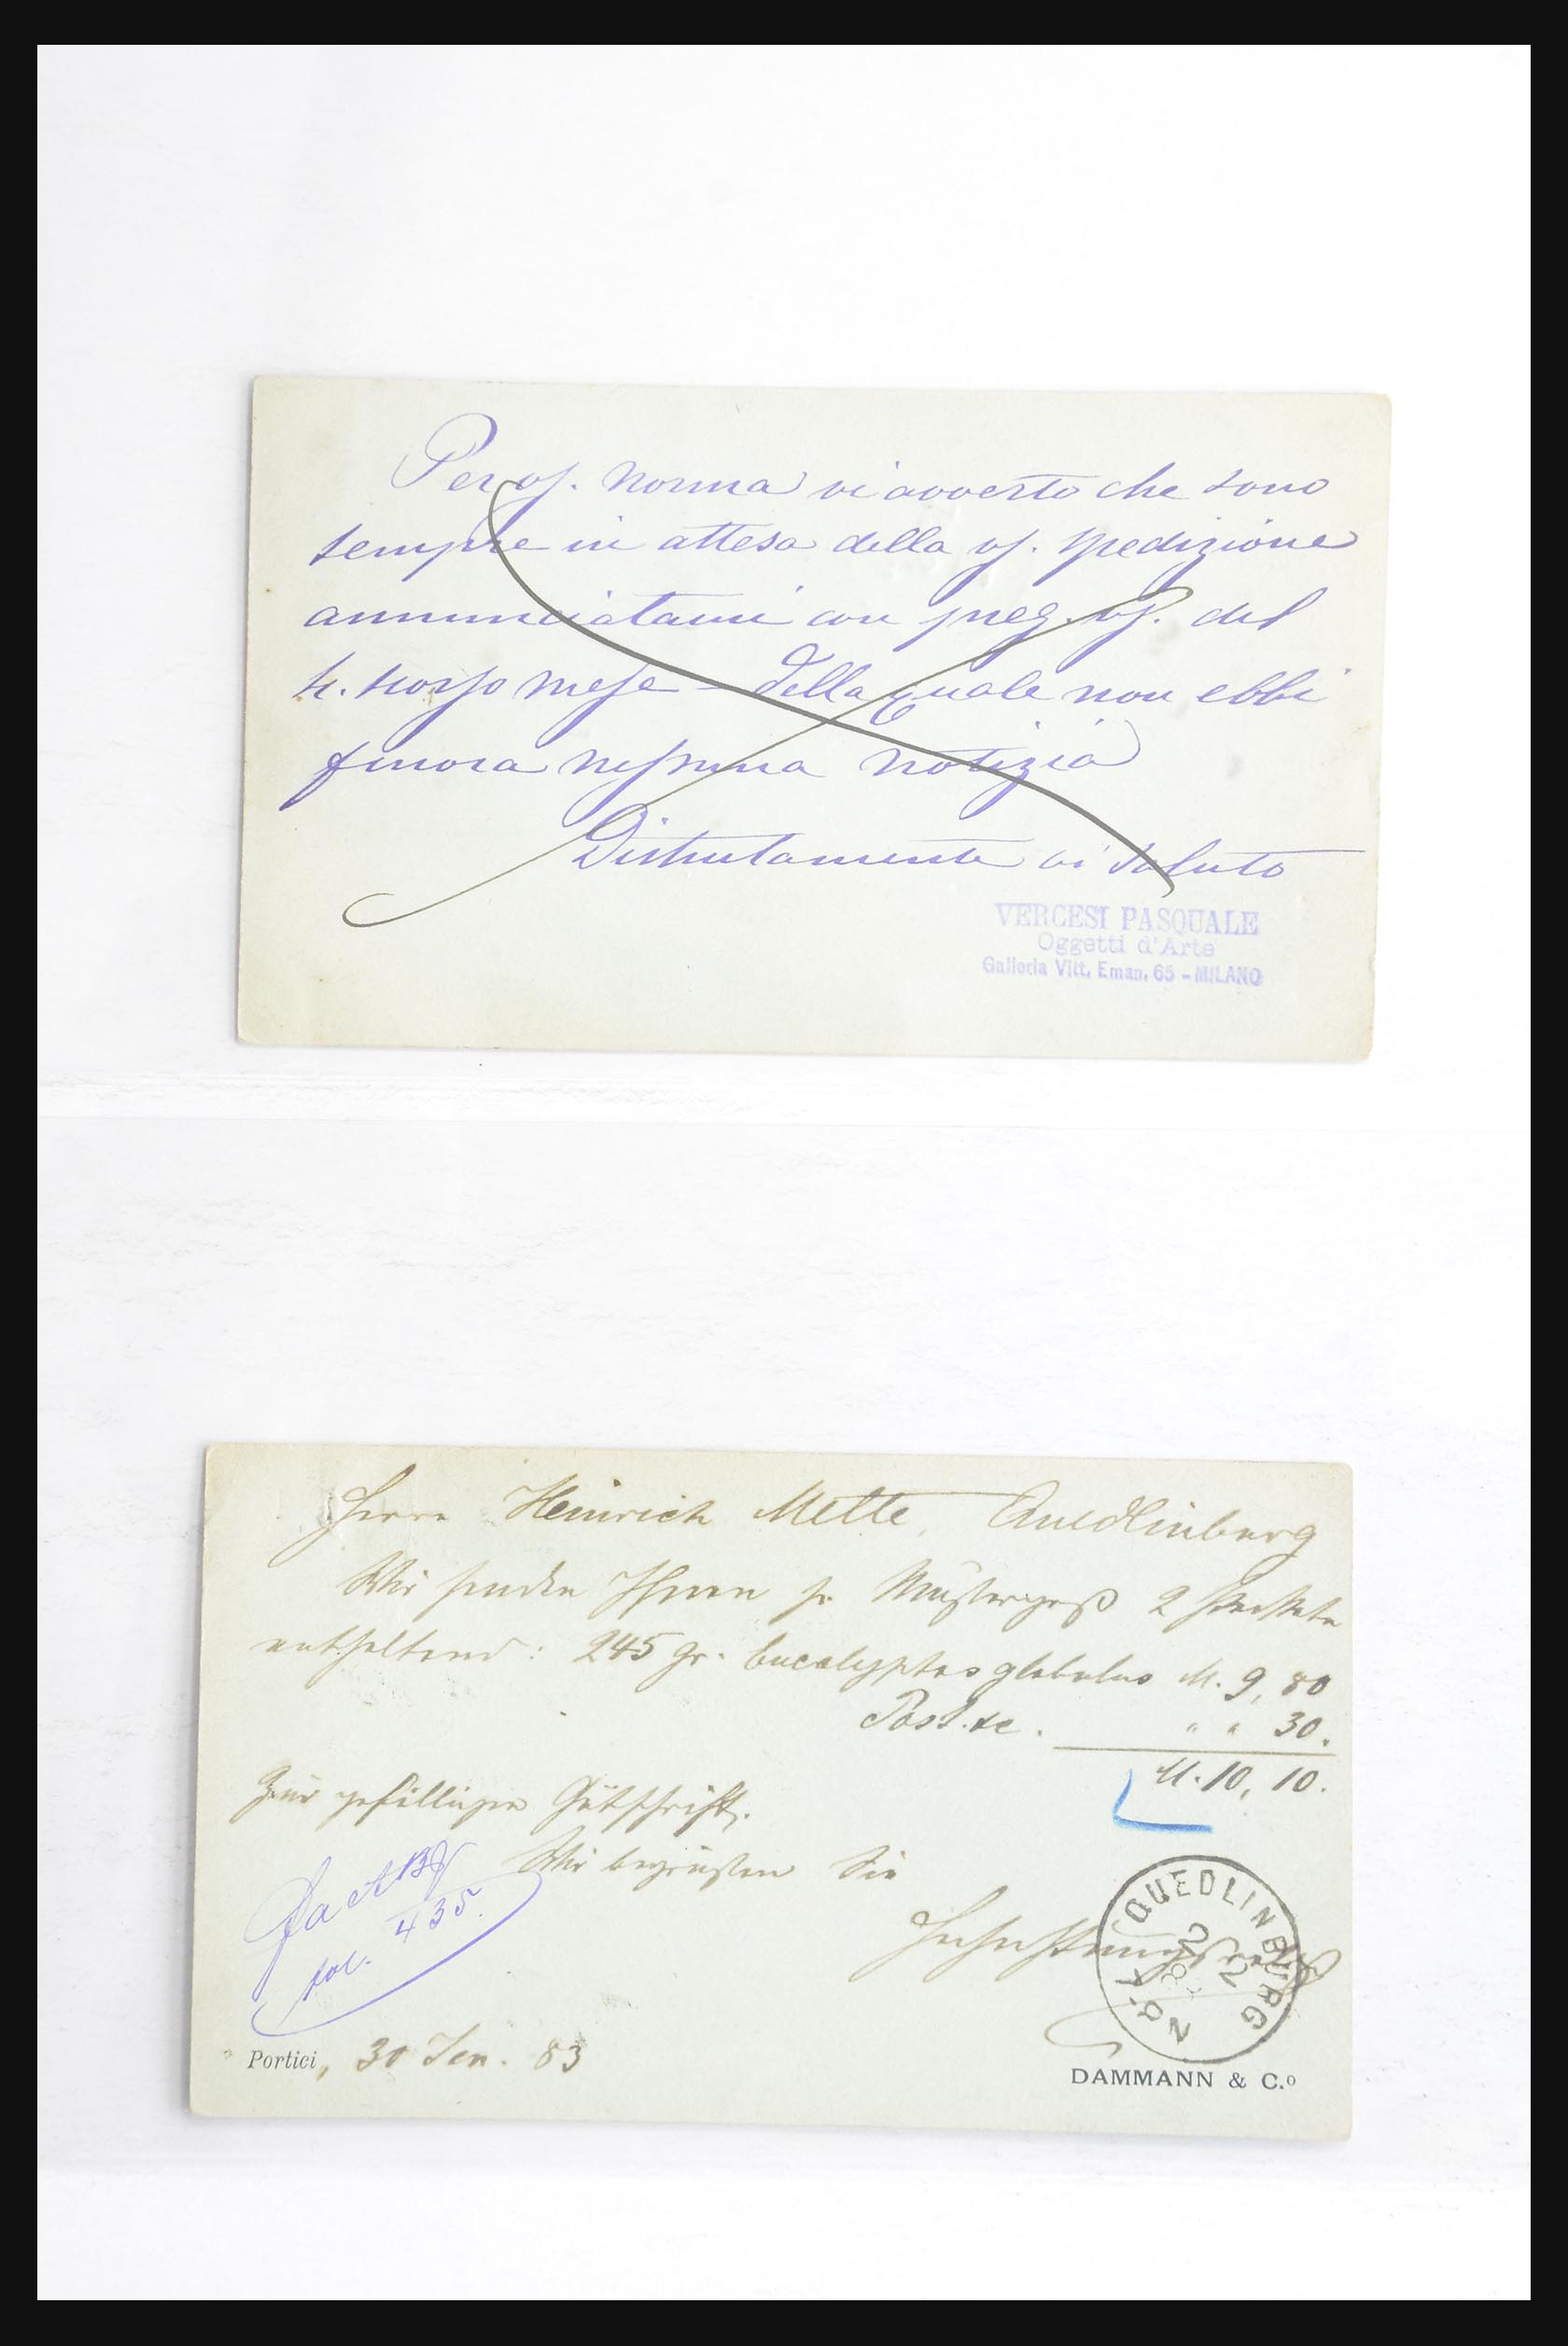 Per vs. norma vi avverto che sono
sempre in attesa della vs. spedizione
annunciatami con preg. vs. del
scorso mese – della quale non ebbi
finora nessuna notizia
Distintamente vi saluto
VERCESI PASQUALE
Oggetti d'Arte
Galleria Vitt. Eman. 65 - MILANO
Herrn Heinrich Mette, Quedlinburg
Wir senden Ihnen pr. 2
enthaltend: 245 gr. Eucalyptus globulus M. 9,80
Post. &c. " " 30.
M. 10, 10.
Zur gefälligen Gutschrift.
Wir begrüssen Sie
435.
fol.
Hochachtungsvoll
QUEDLINBURG
Portici, 30 Jan. 83
DAMMANN & C.º